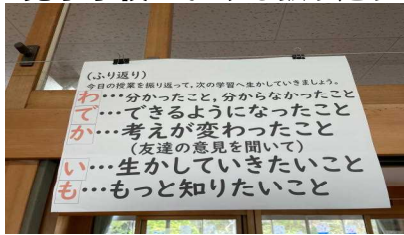 (ふり返り)
今日の授業を振り返って、次の学習へ生かしていきましょう。
わ…分かったこと,分からなかったこと
で…できるようになったこと
か…考えが変わったこと
(友達の意見を聞いて)
い…生かしていきたいこと
も…もっと知りたいこと